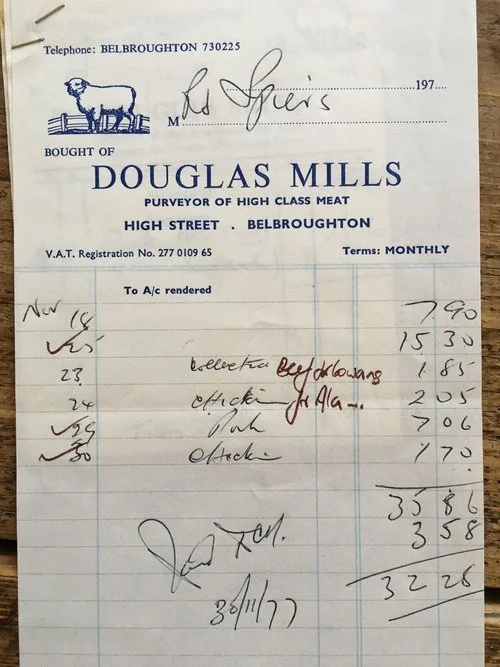 Telephone: BELBROUGHTON 730225
197...
M Rd Spiers
BOUGHT OF
DOUGLAS MILLS
PURVEYOR OF HIGH CLASS MEAT
HIGH STREET . BELBROUGHTON
V.A.T. Registration No. 277 0109 65 Terms: MONTHLY
To A/c rendered
Nov 18 7 90
25 15 30
23 collected Beef 1 85
24 chicken for Ala 2 05
29 Pork 7 06
30 chicken 1 70
35 86
3 58
32 28
Paid
30/11/77